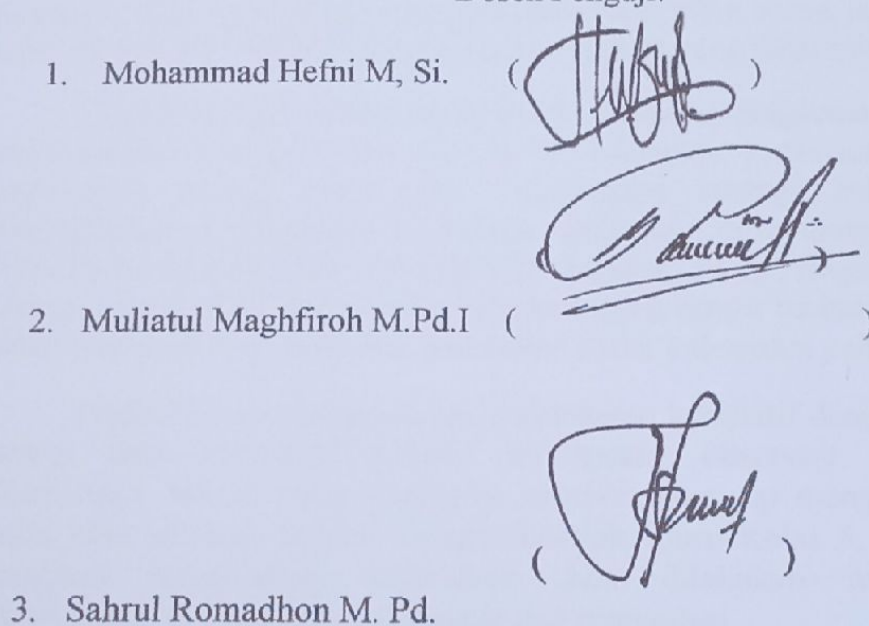 1. Mohammad Hefni M, Si. ( )
( )
2. Muliatul Maghfiroh M.Pd.I ( )
( )
3. Sahrul Romadhon M. Pd.